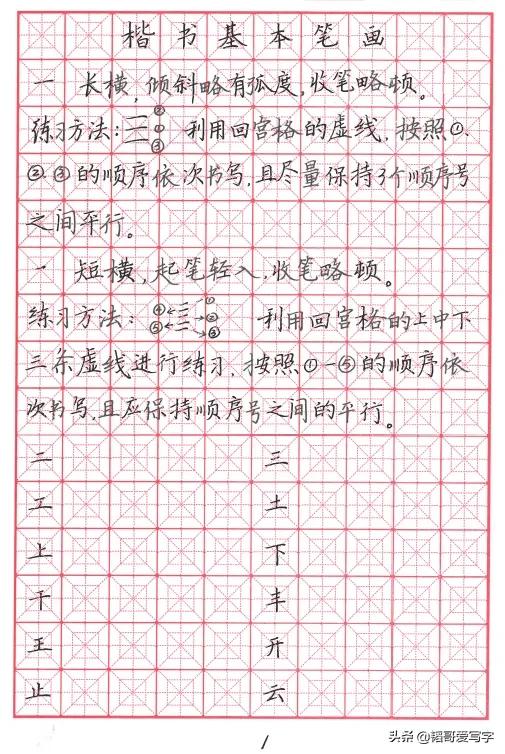 楷书基本笔画
一 长横,倾斜略有弧度,收笔略顿。
练习方法:②①③ 利用回宫格的虚线,按照①、
②、③的顺序依次书写,且尽量保持3个顺序号
之间平行。
一 短横,起笔轻入,收笔略顿。
练习方法:④①⑤②③ 利用回宫格的上中下
三条虚线进行练习,按照①-⑤的顺序依
次书写,且应保持顺序号之间的平行。
二 三
工 土
上 下
干 丰
王 开
止 云
1
头条@韬哥爱写字